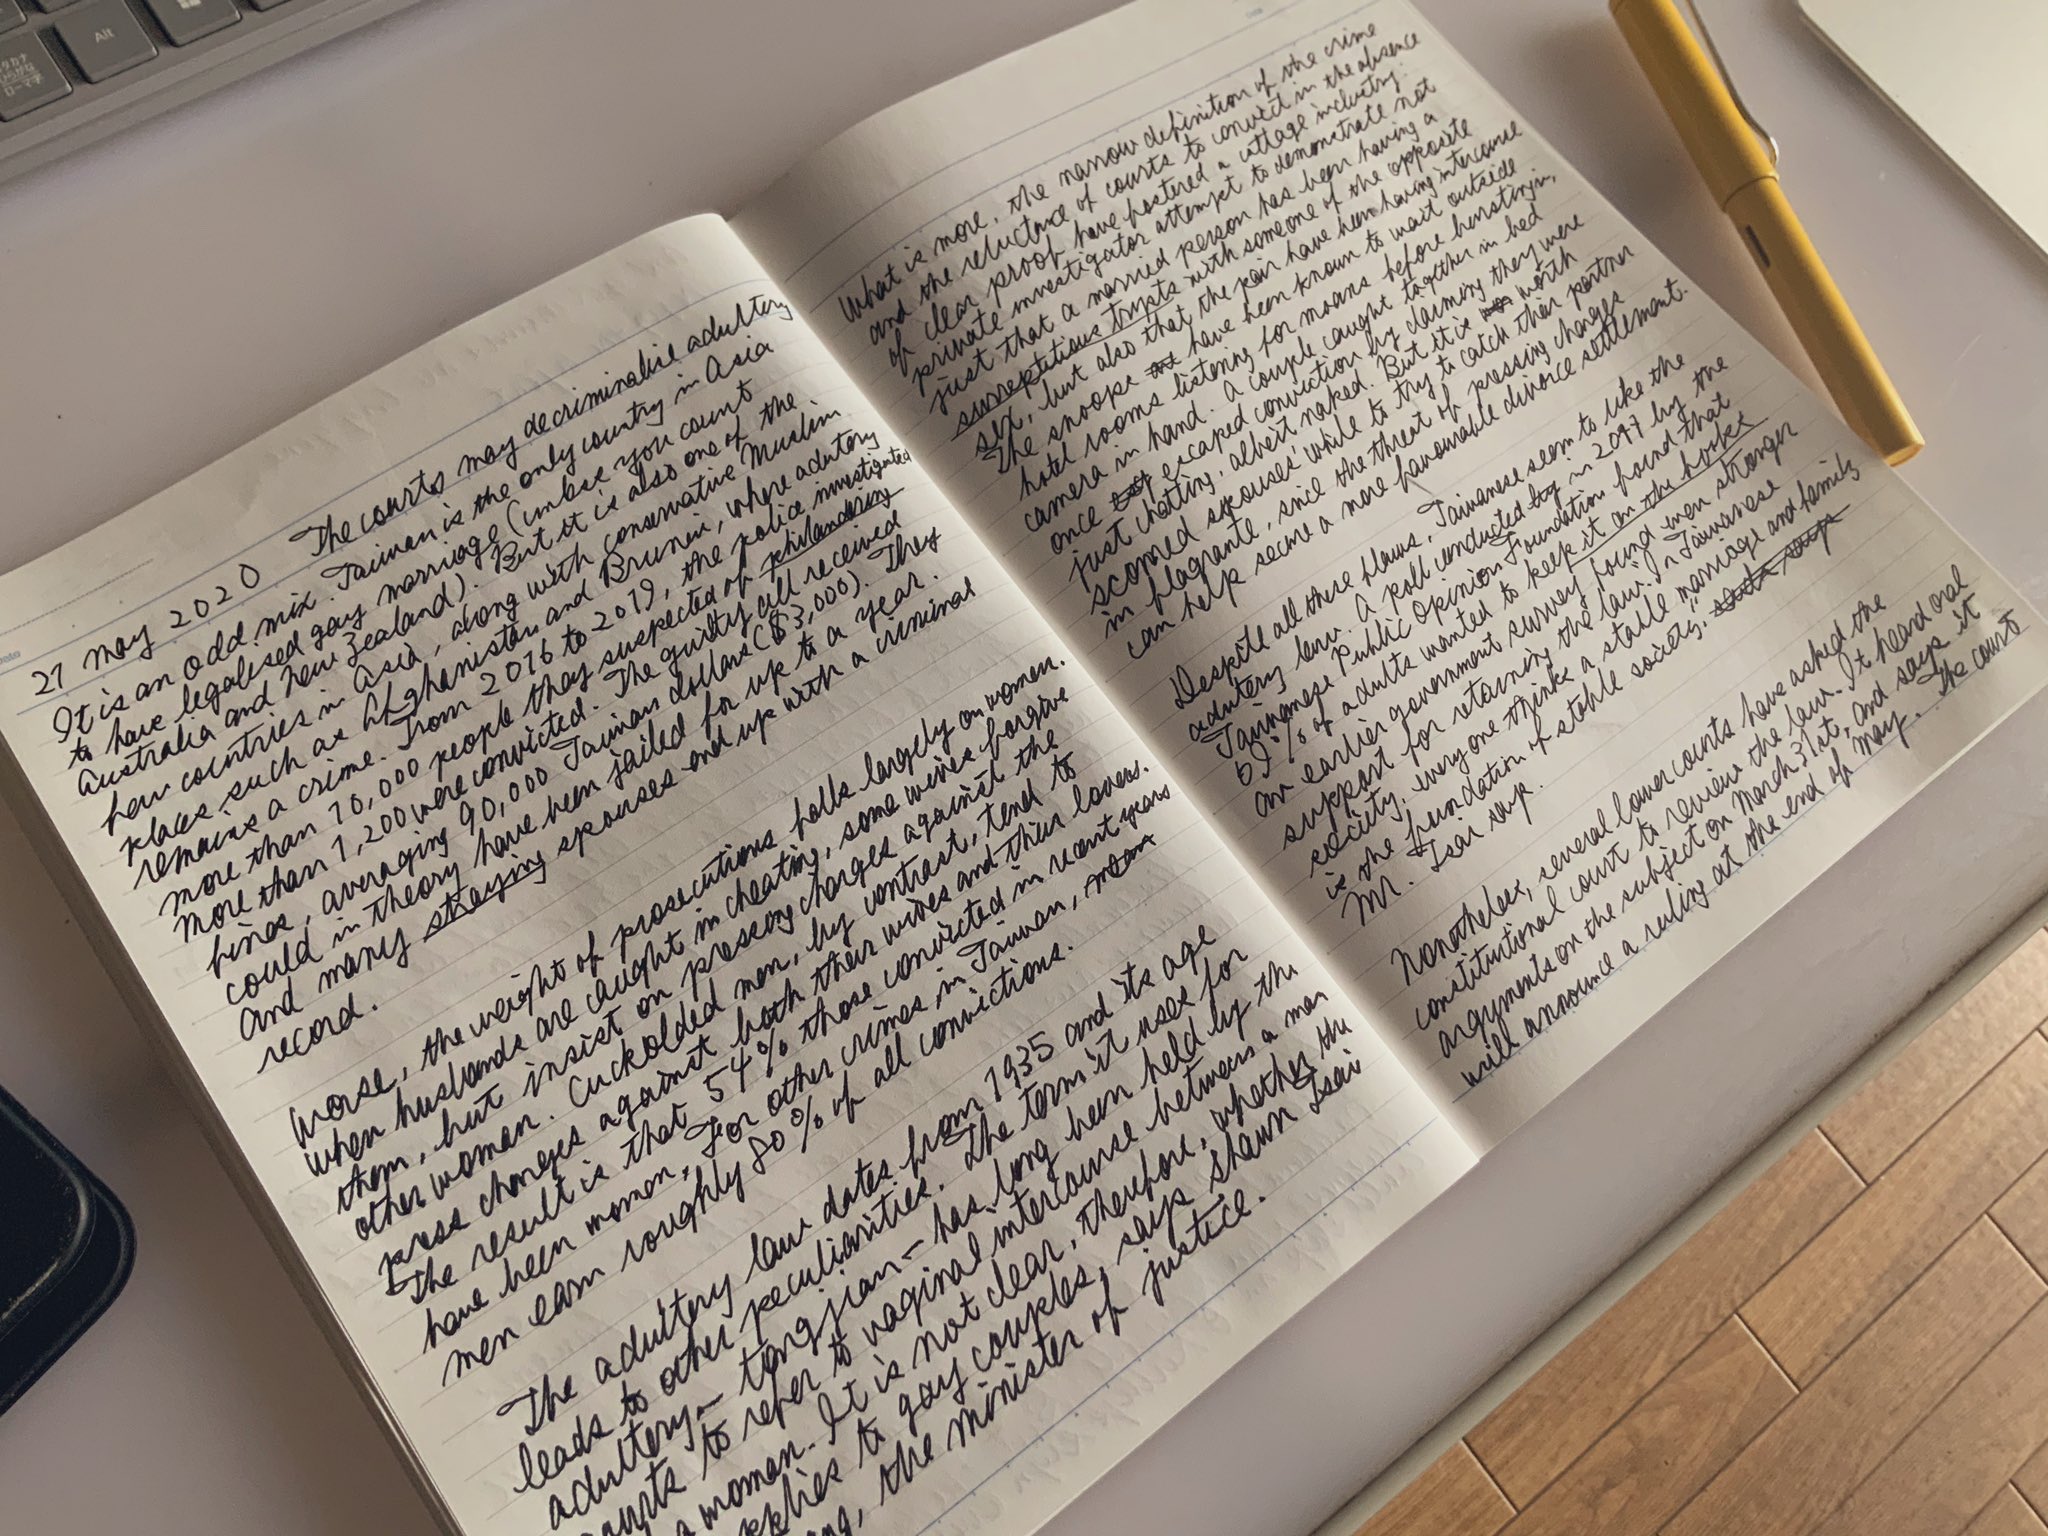 Alt
カタカナ
ひらがな
ローマ字
Date
27 May 2020 The courts may decriminalise adultery
It is an odd mix. Taiwan is the only country in Asia
to have legalised gay marriage (unless you count
Australia and New Zealand). But it is also one of the
few countries in Asia, along with conservative Muslim
places such as Afghanistan and Brunei, where adultery
remains a crime. From 2016 to 2019, the police investigated
more than 10,000 people they suspected of philandering
more than 1,200 were convicted. The guilty all received
fines, averaging 90,000 Taiwan dollars ($3,000). They
could in theory have been jailed for up to a year.
And many straying spouses end up with a criminal
record.
Worse, the weight of prosecutions falls largely on women.
When husbands are caught in cheating, some wives forgive
them, but insist on pressing charges against the
other woman. Cuckolded men, by contrast, tend to
press charges against both their wives and their lovers.
The result is that 54% those convicted in recent years
have been women. For other crimes in Taiwan,
men earn roughly 80% of all convictions.
The adultery law dates from 1935 and its age
leads to other peculiarities. The term it uses for
adultery – tongjian – has long been held by the
courts to refer to vaginal intercourse between a man
a woman. It is not clear, therefore, whether the
applies to gay couples, says Shawn Tsai
the minister of justice.
Date
What is more, the narrow definition of the crime
and the reluctance of courts to convict in the absence
of clear proof have fostered a cottage industry.
private investigator attempt to demonstrate not
just that a married person has been having a
surreptitious trysts with someone of the opposite
sex, but also that the pair have been having intercourse
The snoops have been known to wait outside
hotel rooms listening for moans before bursting in,
camera in hand. A couple caught together in bed
once escaped conviction by claiming they were
just chatting, albeit naked. But it is worth
scorned spouses' while to try to catch their partner
in flagrante, since the threat of pressing charges
can help secure a more favourable divorce settlement.
Despite all these flaws, Taiwanese seem to like the
adultery law. A poll conducted in 2017 by the
Taiwanese Public Opinion Foundation found that
69% of adults wanted to keep it on the books
an earlier government survey found even stronger
support for retaining the law. In Taiwanese
society, everyone thinks a stable marriage and family
is the foundation of stable society,"
Mr. Tsai says.
Nonetheless, several lower courts have asked the
constitutional court to review the law. It heard oral
arguments on the subject on March 31st, and says it
will announce a ruling at the end of May. The court